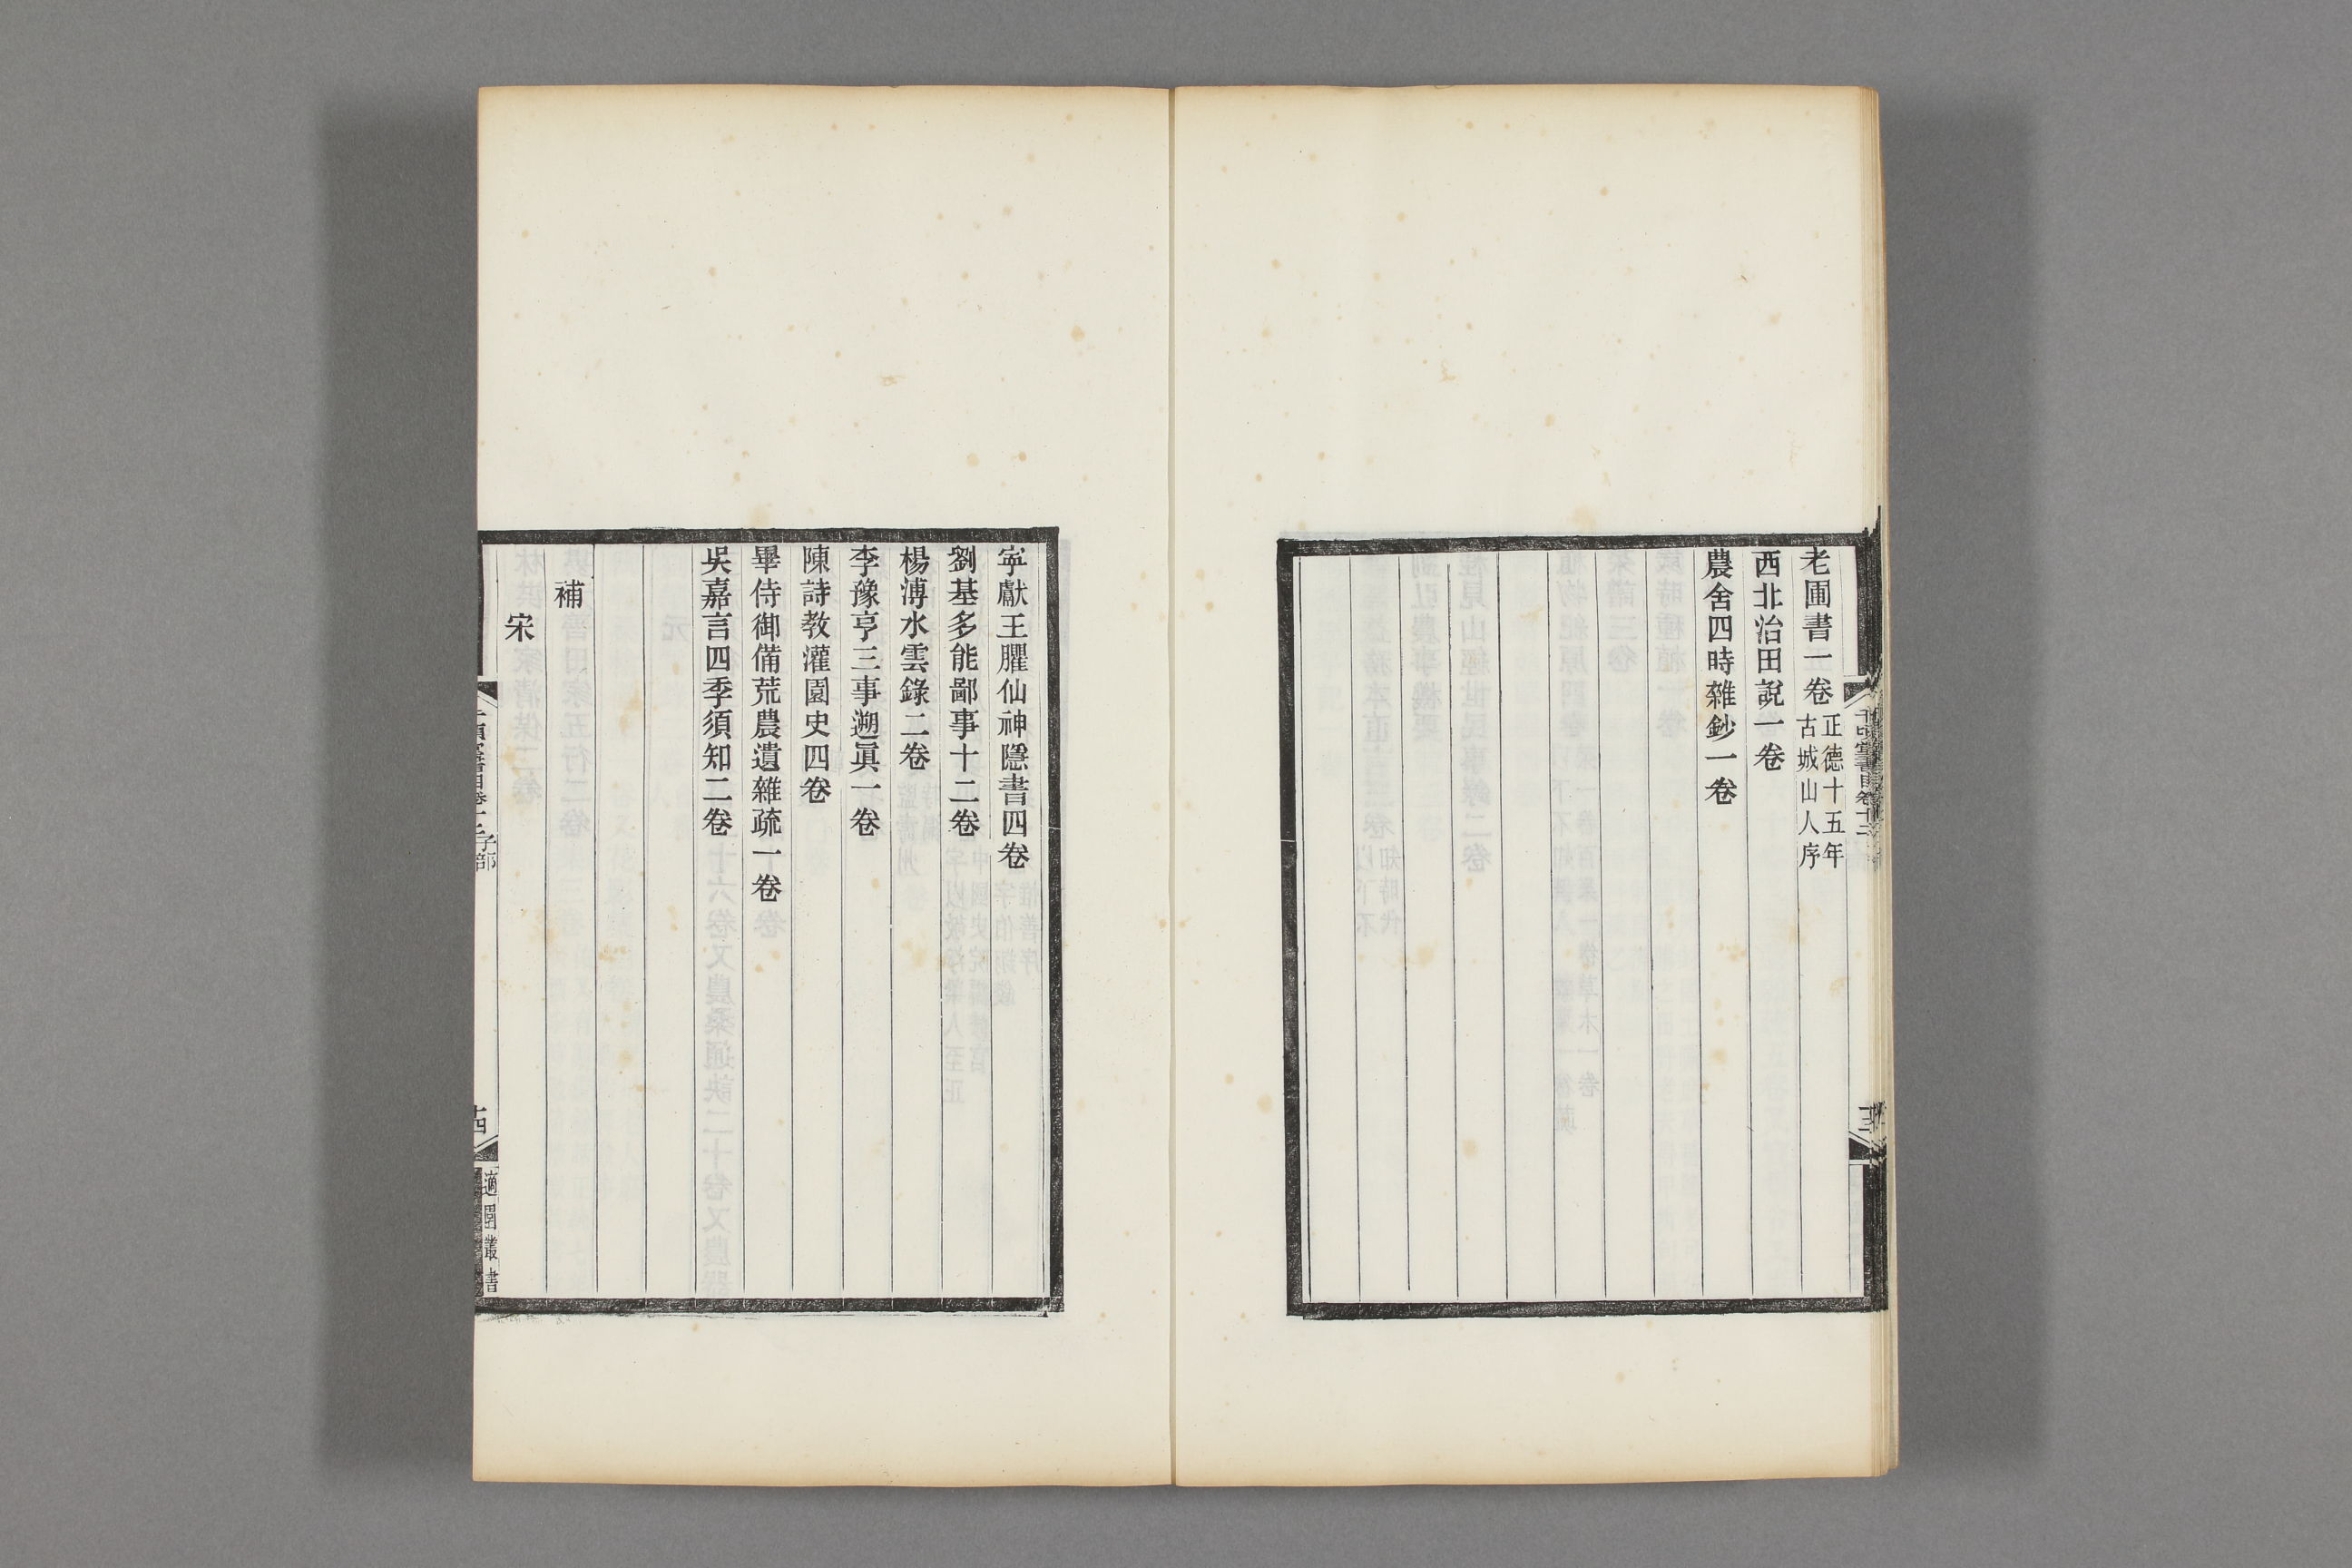 老圃書一卷 正德十五年古城山人序
西北治田說一卷
農舍四時雜鈔一卷
寜獻王臞仙神隱書四卷
劉基多能鄙事十二卷
楊溥水雲錄二卷
李豫亨三事遡眞一卷
陳詩教灌園史四卷
畢侍御備荒農遺雜疏一卷
吳嘉言四季須知二卷
補
宋
子部
適園叢書